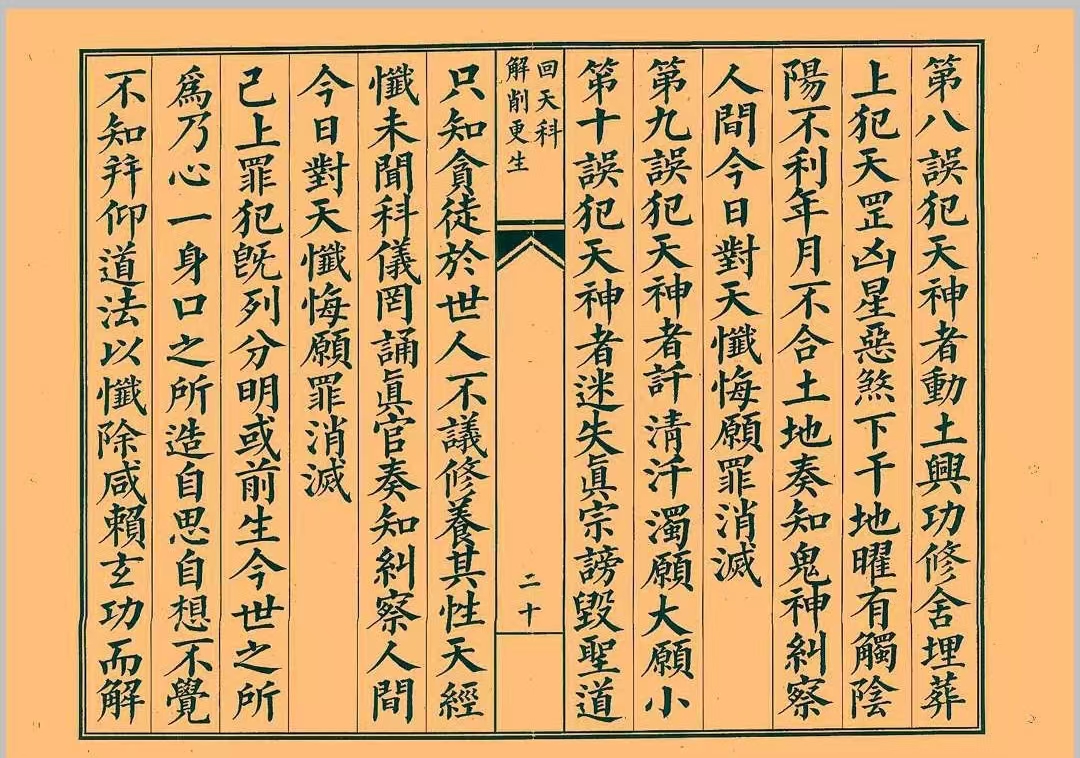 第八誤犯天神者動土興功修舍埋葬
上犯天罡凶星惡煞下干地曜有觸陰
陽不利年月不合土地奏知鬼神糾察
人間今日對天懺悔願罪消滅
第九誤犯天神者託清汙濁願大願小
第十誤犯天神者迷失眞宗謗毀聖道
回天科
解削更生
二十
只知貪徒於世人不議修養其性天經
懺未聞科儀罔誦眞官奏知糾察人間
今日對天懺悔願罪消滅
己上罪犯旣列分明或前生今世之所
爲乃心一身口之所造自思自想不覺
不知辩仰道法以懺除咸賴玄功而解